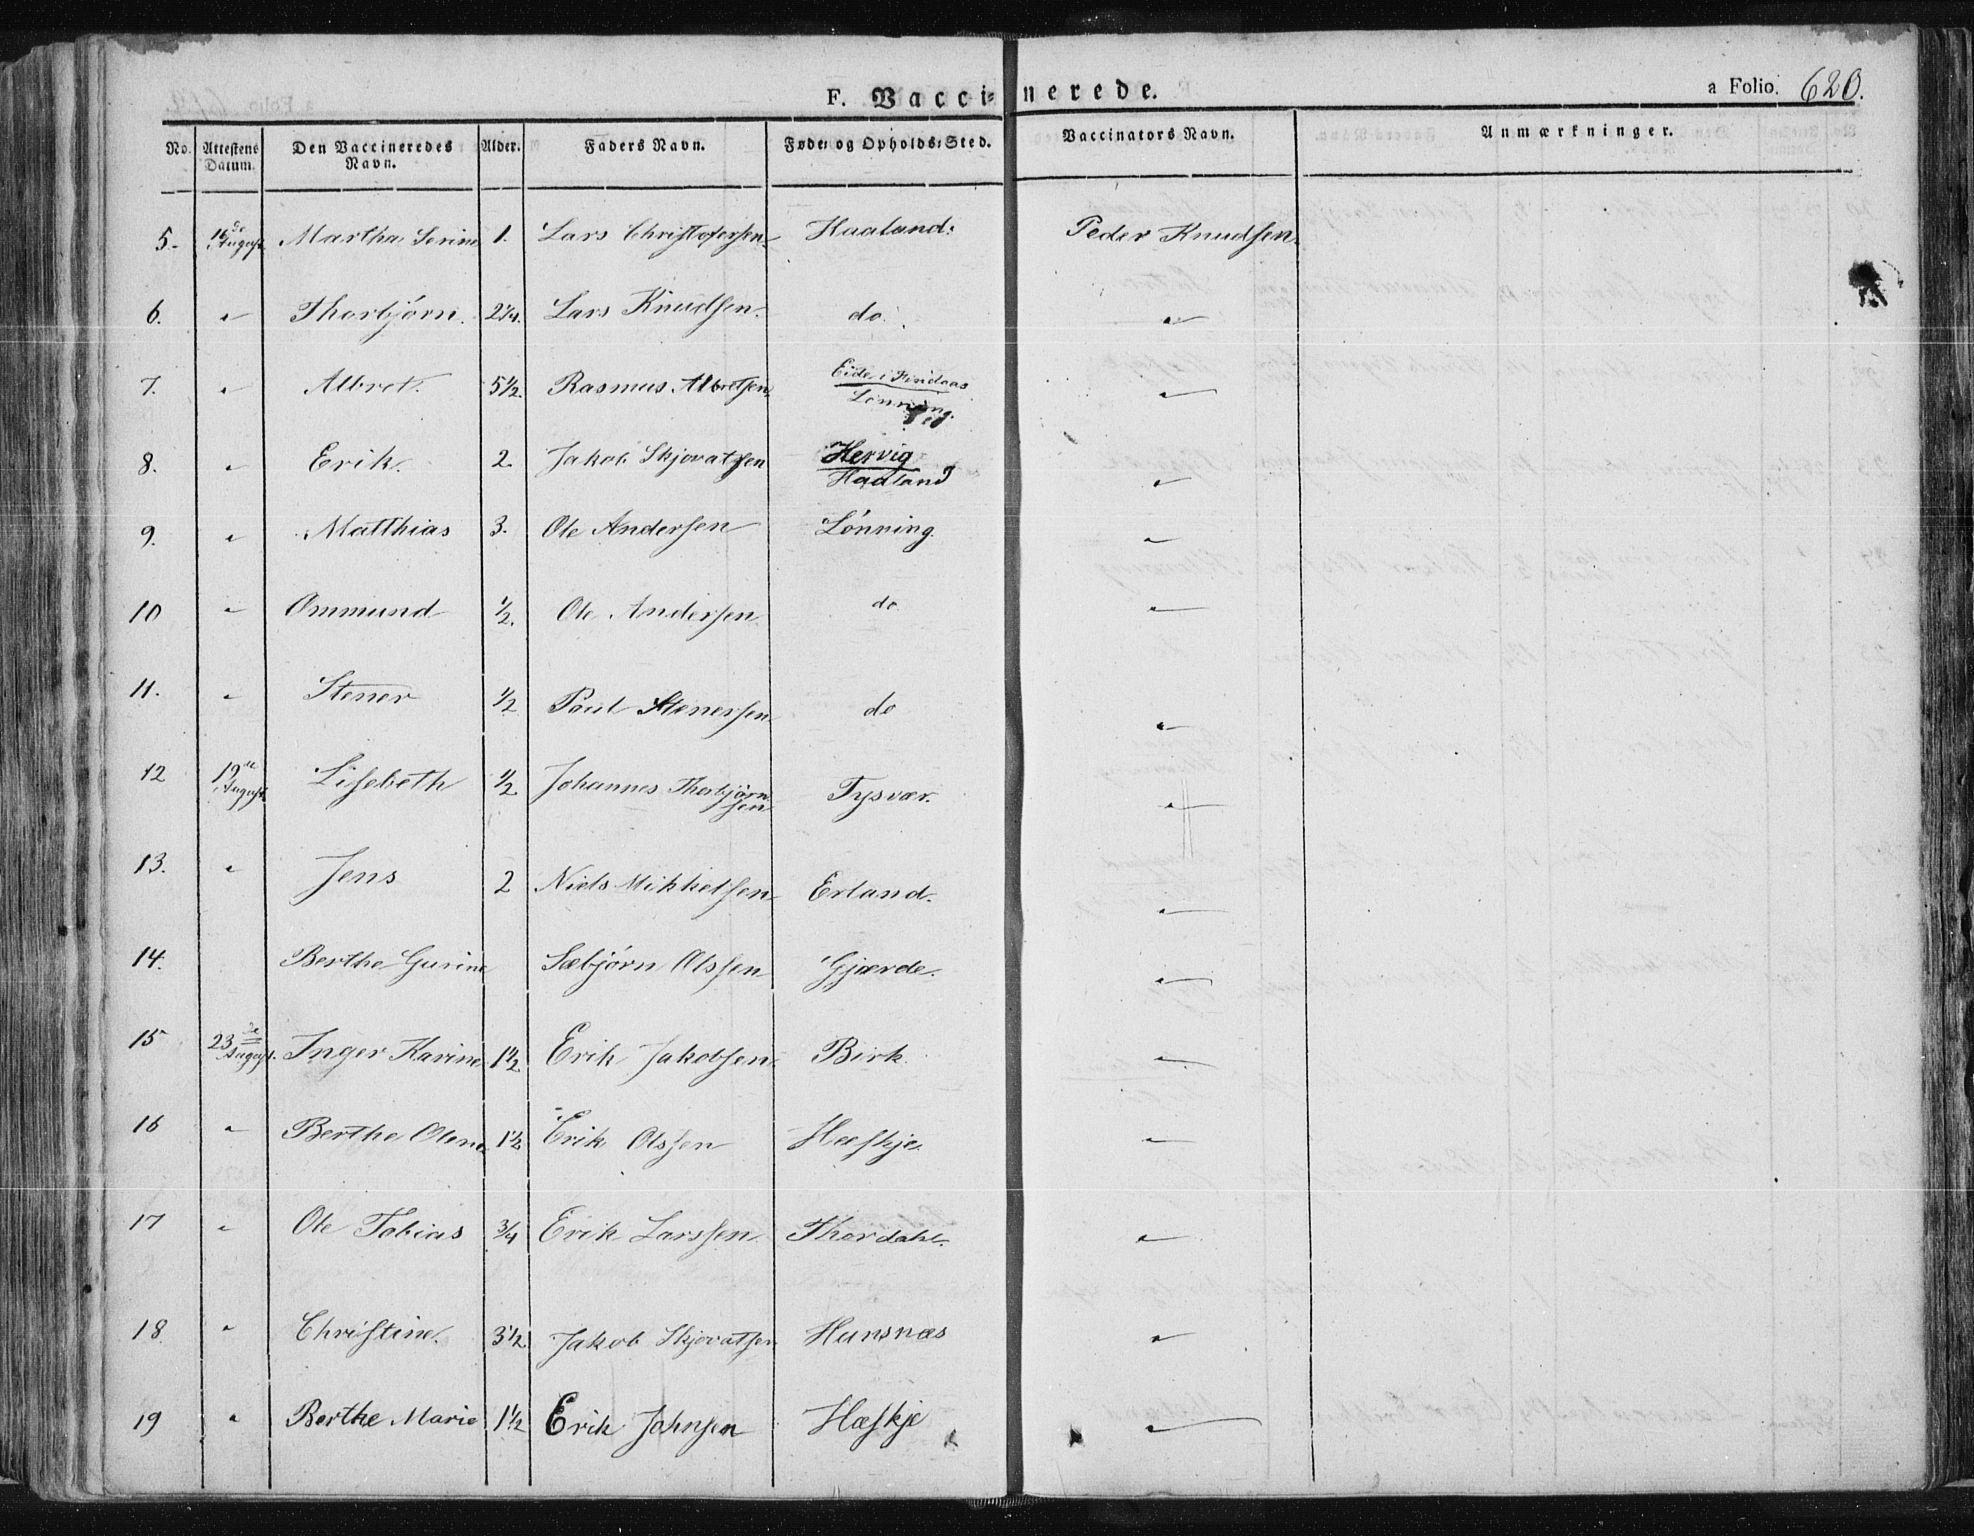 F. Vaccinerede. a Folio. 620.
No. Attestens Datum. Den Vaccineredes Navn. Alder. Faders Navn. Føde- og Opholds-Sted. Vaccinators Navn. Anmærkninger.
5. 16de August Martha Serine 1. Lars Christofersen Haaland. Peder Knudsen
6. " Thorbjørn. 2 1/4. Lars Knudsen. do. "
7. " Albret. 5 1/2. Rasmus Albretsen Eide i Findaas Lønning. "
8. " Erik. 2. Jakob Skjovatsen Hervig Haaland "
9. " Matthias 3. Ole Andersen Lønning. "
10 " Ommund 1/2. Ole Andersen do "
11. " Stener 1/2 Poul Stenersen do "
12 19de August Lisebeth 1/2 Johannes Thorbjørnsen Tysvær. "
13. " Jens 2 Niels Mikkelsen Erland. "
14. Berthe Gurine Sæbjørn Olssen Gjærde. "
15 23de August. Inger Karine 1 1/2 Erik Jakobsen Birk. "
16 " Berthe Olene 1 1/2 Erik Olssen Hæskje. "
17 " Ole Tobias 3/4 Erik Larssen. Thordahl. "
18 " Christine. 3 1/2 Jakob Skjovatsen Hunsnæs "
19 " Berthe Marie 1 1/2 Erik Johnsen Hæskje "